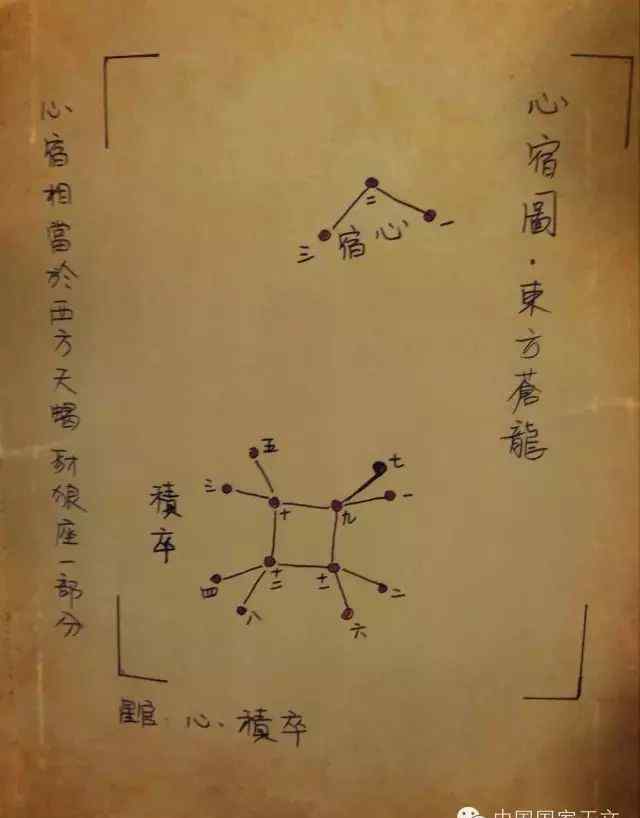 心宿圖·東方蒼龍
二
一
三
宿心
五
七
三
一
十
九
積卒
十二
十一
四
二
八
六
星官·心、積卒
心宿相當於西方天蝎豺狼座一部分
中国国家天文